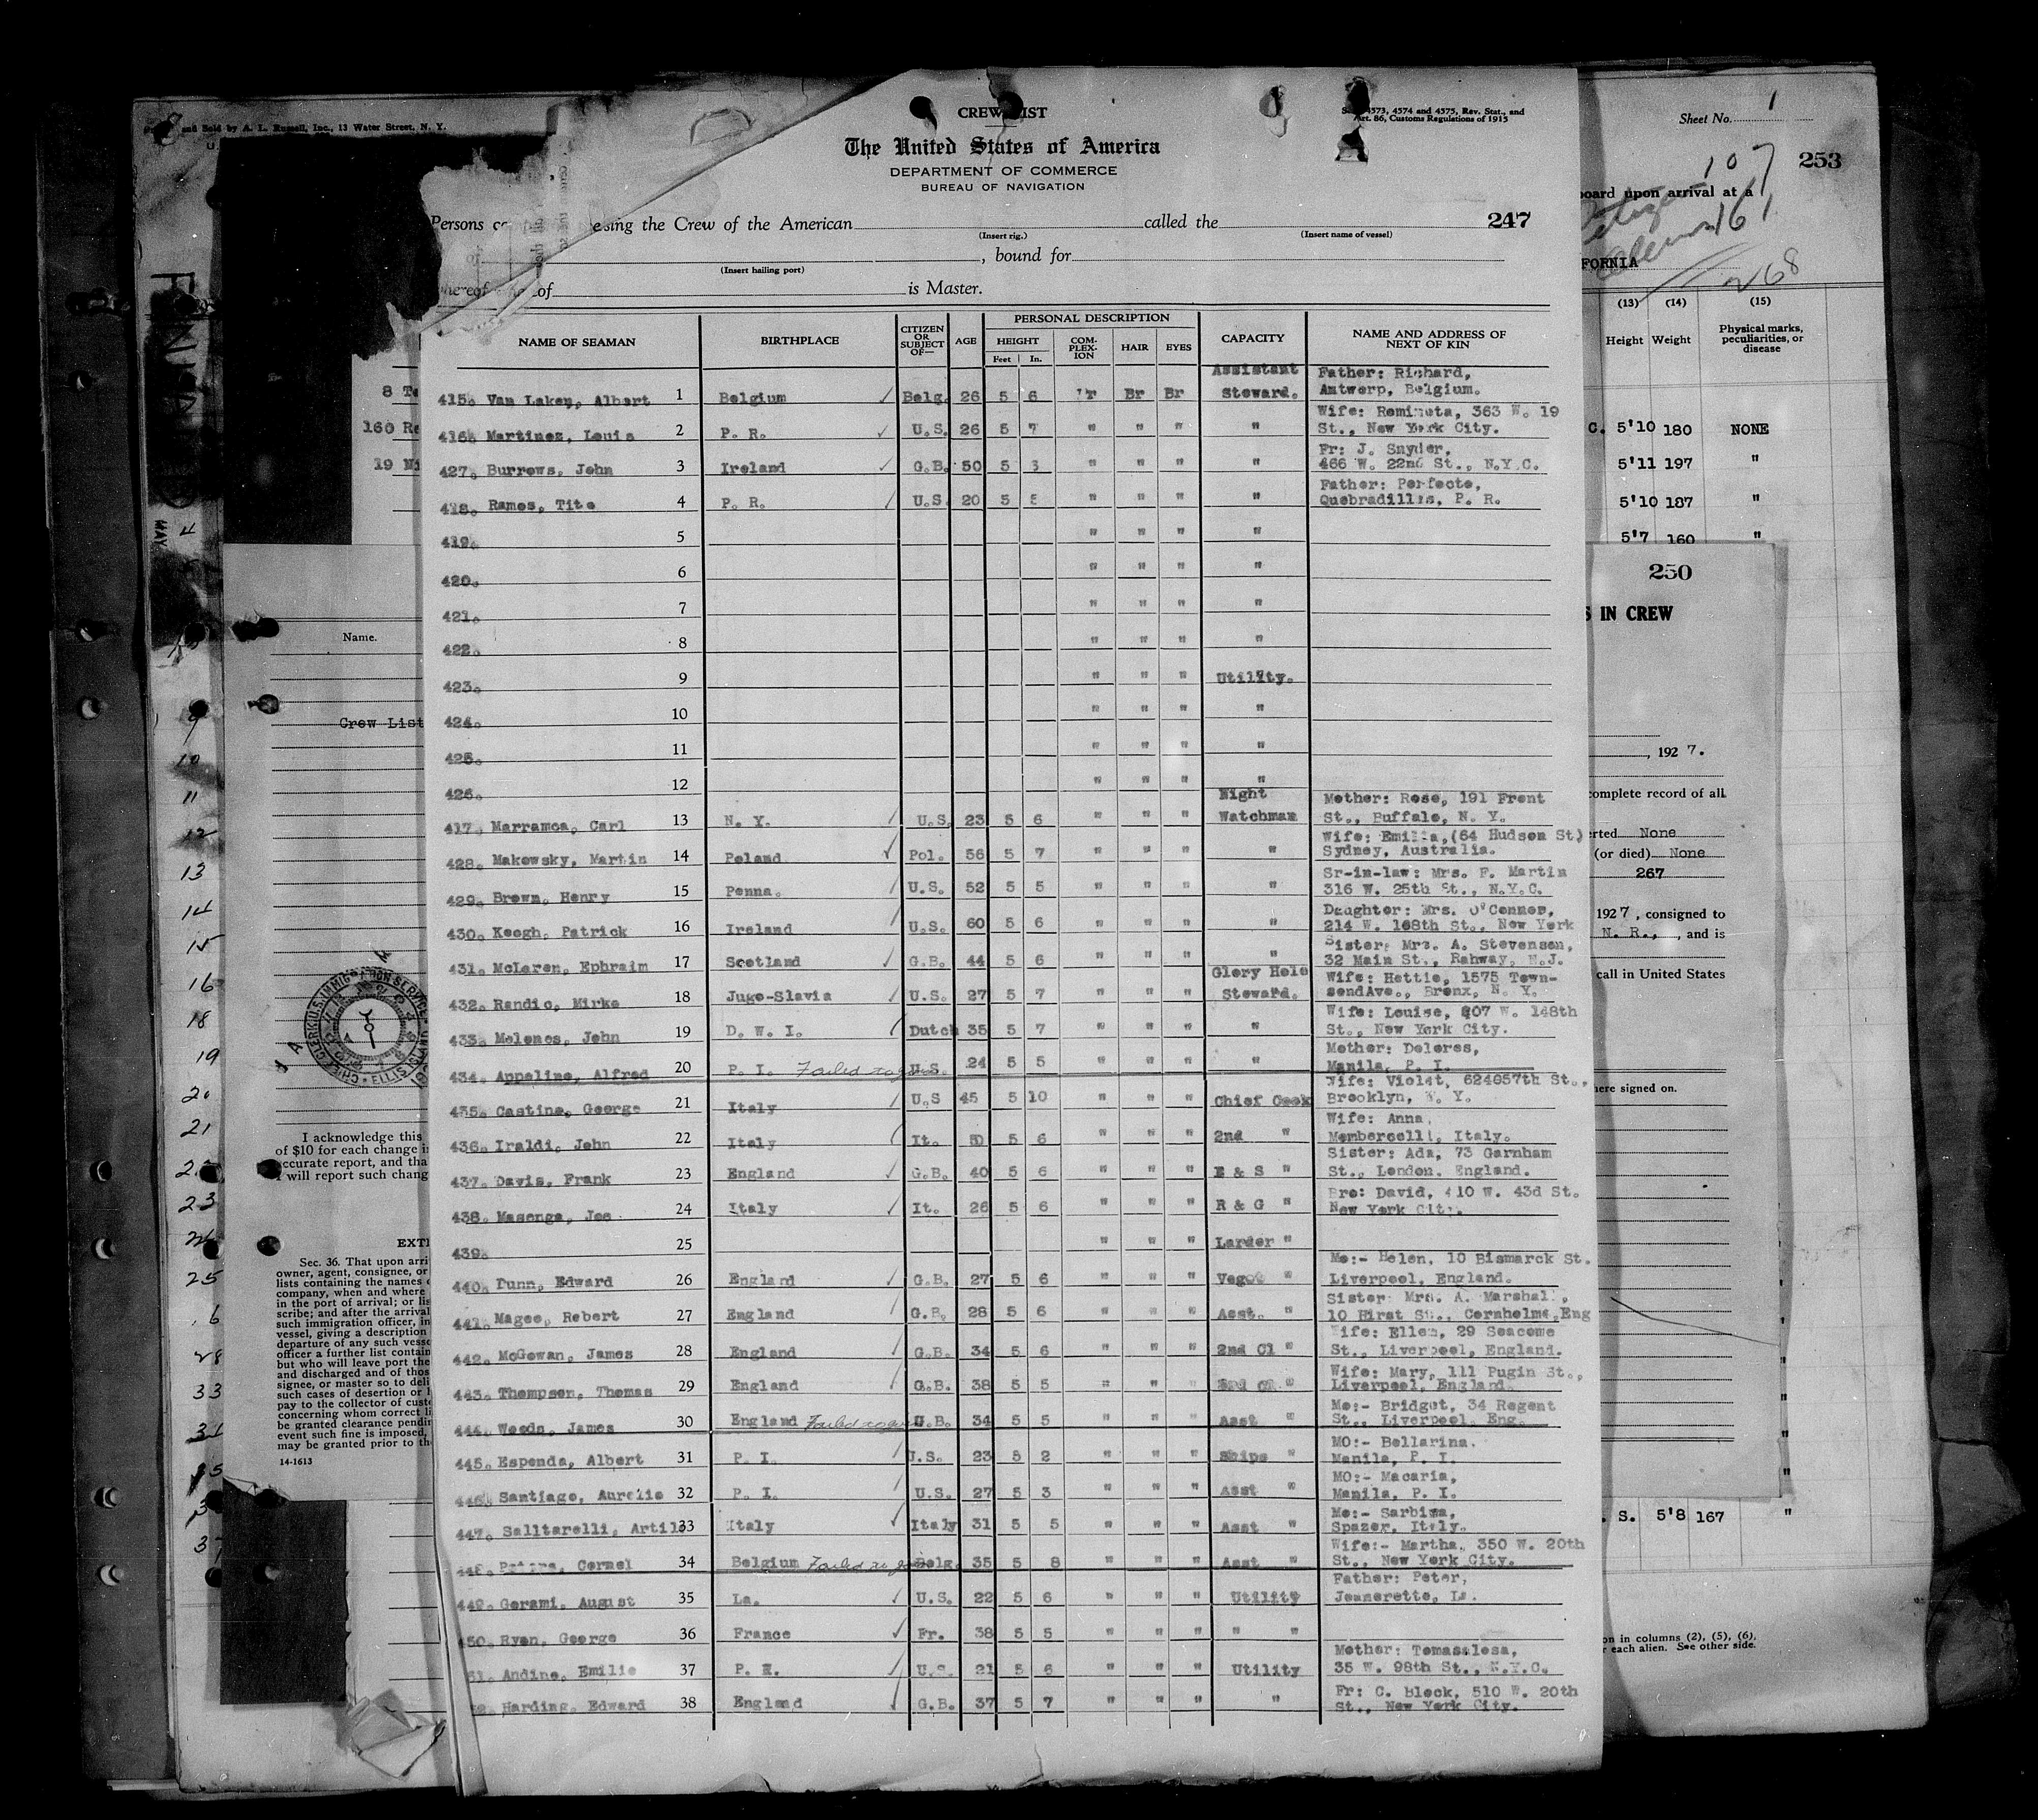 and Sold by A. L. Russell, Inc., 13 Water Street, N. Y.
CREW LIST
4573, 4574 and 4575, Rev. Stat., and
Art. 86, Customs Regulations of 1915
The United States of America
DEPARTMENT OF COMMERCE
BUREAU OF NAVIGATION
247
Persons sing the Crew of the American called the
(Insert rig.) (Insert name of vessel)
, bound for
(Insert hailing port)
whereof is Master.
NAME OF SEAMAN BIRTHPLACE CITIZEN OR SUBJECT OF— AGE PERSONAL DESCRIPTION HEIGHT Feet In. COM- PLEX- ION HAIR EYES CAPACITY NAME AND ADDRESS OF NEXT OF KIN
415. Van Laken, Albert 1 Belgium ✓ Belg. 26 5 6 Br Br Assistant Steward. Father: Richard, Antwerp, Belgium.
416. Martinez, Louis 2 P. R. ✓ U.S. 26 5 7 " " " " Wife: Remineta, 363 W. 19 St., New York City.
427. Burrows, John 3 Ireland ✓ G.B. 50 5 " " " " Fr: J. Snyder, 466 W. 22nd St., N.Y.C.
418. Rames, Tite 4 P. R. ✓ U.S. 20 5 " " " " Father: Perfecte, Quebradillis, P. R.
419. 5 " " " "
420. 6 " " " "
421. 7 " " " "
422. 8 " " " "
423. 9 " " " Utility.
424. 10 " " " "
425. 11 " " " "
426. 12 " " " "
417. Marramca, Carl 13 N. Y. ✓ U.S. 23 5 6 " " " Night Watchman Mother: Rose, 191 Front St., Buffalo, N. Y.
428. Makowsky, Martin 14 Poland ✓ Pol. 56 5 7 " " " " Wife: Emilia, (64 Hudson St) Sydney, Australia.
429. Brown, Henry 15 Penna. ✓ U.S. 52 5 5 " " " " Sr-in-law: Mrs. F. Martin 316 W. 25th St., N.Y.C.
430. Keegh, Patrick 16 Ireland ✓ U.S. 60 5 6 " " " " Daughter: Mrs. O'Conner, 214 W. 168th St., New York
431. McLaren, Ephraim 17 Scotland ✓ G.B. 44 5 6 " " " " Sister: Mrs. A. Stevenson, 32 Main St., Rahway, N.J.
432. Randic, Mirke 18 Jugo-Slavia ✓ U.S. 27 5 7 " " " Glory Hole Steward. Wife: Hettie, 1575 Town- sendAve., Bronx, N. Y.
433. Melenes, John 19 D. W. I. ✓ Dutch 35 5 7 " " " " Wife: Louise, 207 W. 148th St., New York City.
434. Appeline, Alfred 20 P. I. Failed to join U.S. 24 5 5 " " " " Mother: Deleres, Manila, P. I.
435. Castine, George 21 Italy ✓ U.S 45 5 10 " " " Chief Cook Wife: Violet, 624057th St., Brooklyn, N. Y.
436. Iraldi, John 22 Italy ✓ It. 50 5 6 " " " 2nd " Wife: Anna, Membercelli, Italy.
437. Davis, Frank 23 England ✓ G.B. 40 5 6 " " " E & S " Sister: Ada, 73 Garnham St., London, England.
438. Masenga, Joe 24 Italy ✓ It. 26 5 6 " " " R & G " Bro: David, 410 W. 43d St. New York City.
439. 25 " " " Larder "
440. Dunn, Edward 26 England ✓ G.B. 27 5 6 " " " Veget " Mo:- Helen, 10 Bismarck St. Liverpool, England.
441. Magee, Robert 27 England ✓ G.B. 28 5 6 " " " Asst. " Sister: Mrs. A. Marshall, 10 Hirst St., Cornholme, Eng
442. McGowan, James 28 England ✓ G.B. 34 5 6 " " " 2nd Cl " Wife: Ellen, 29 Seacome St., Liverpool, England.
443. Thompson, Thomas 29 England ✓ G.B. 38 5 5 " " " " Wife: Mary, 111 Pugin St., Liverpool, England.
444. Weedn, James 30 England Failed to join G.B. 34 5 5 " " " Asst " Mo:- Bridget, 34 Regent St., Liverpool, Eng.
445. Espenda, Albert 31 P. I. ✓ U.S. 23 5 2 " " " Ships " MO:- Bellarina, Manila, P. I.
446. Santiago, Aurelio 32 P. I. ✓ U.S. 27 5 3 " " " Asst " MO:- Macaria, Manila, P. I.
447. Salltarelli, Artil 33 Italy ✓ Italy 31 5 5 " " " Asst " Mo:- Sarbina, Spazer, Italy.
448. Peters, Cornel 34 Belgium Failed to join Belg. 35 5 8 " " " Asst " Wife:- Martha, 350 W. 20th St., New York City.
449. Gerami, August 35 La. ✓ U.S. 22 5 6 " " " Utility Father: Peter, Jeanerette, La.
450. Ryan, George 36 France ✓ Fr. 38 5 5 " " " " "
51. Andine, Emilie 37 P. R. ✓ U.S. 21 5 6 " " " Utility Mother: Temasalesa, 35 W. 98th St., N.Y.C.
Harding, Edward 38 England ✓ G.B. 37 5 7 " " " " Fr: C. Block, 510 W. 20th St., New York City.
MAY
8
160
19
Name.
Crew List
I acknowledge this
of $10 for each change i
ccurate report, and tha
I will report such chang
Sec. 36. That upon arri
owner, agent, consignee, or
lists containing the names
company, when and where
in the port of arrival; or lis
scribe; and after the arrival
such immigration officer, in
vessel, giving a description
departure of any such vesse
officer a further list contain
but who will leave port the
and discharged and of thos
signee, or master so to deli
such cases of desertion or l
pay to the collector of cust
concerning whom correct li
be granted clearance pendin
event such fine is imposed,
may be granted prior to th
14-1613
Sheet No. 1
107
253
board upon arrival at a
161
FORNIA
268
(13) (14) (15)
Height Weight Physical marks, peculiarities, or disease
C. 5'10 180 NONE
5'11 197 "
5'10 187 "
5'7 160 "
250
S IN CREW
, 1927.
complete record of all
erted None
(or died) None
267
1927, consigned to
N. R., , and is
call in United States
here signed on.
S. 5'8 167 "
on in columns (2), (5), (6),
r each alien. See other side.